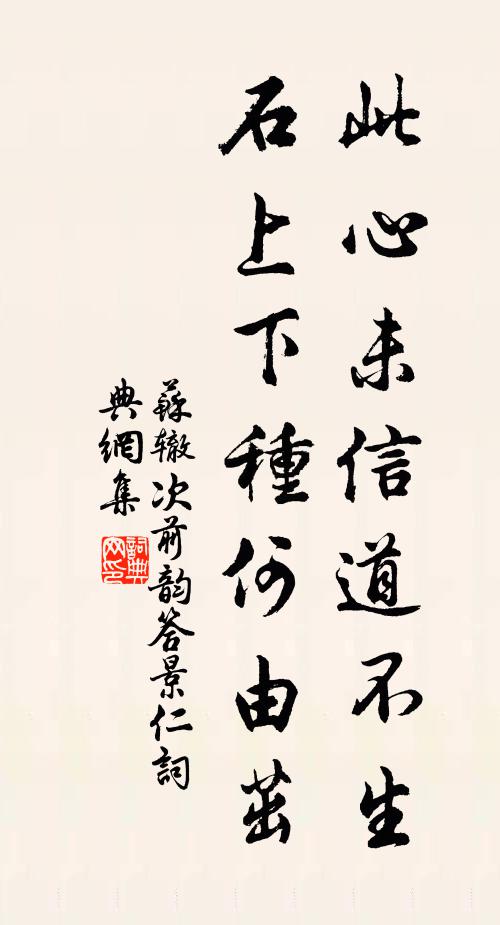 此心未信道不生
石上下種何由茁
蘇辙次前韵答景仁詞
典網集
詞典网印